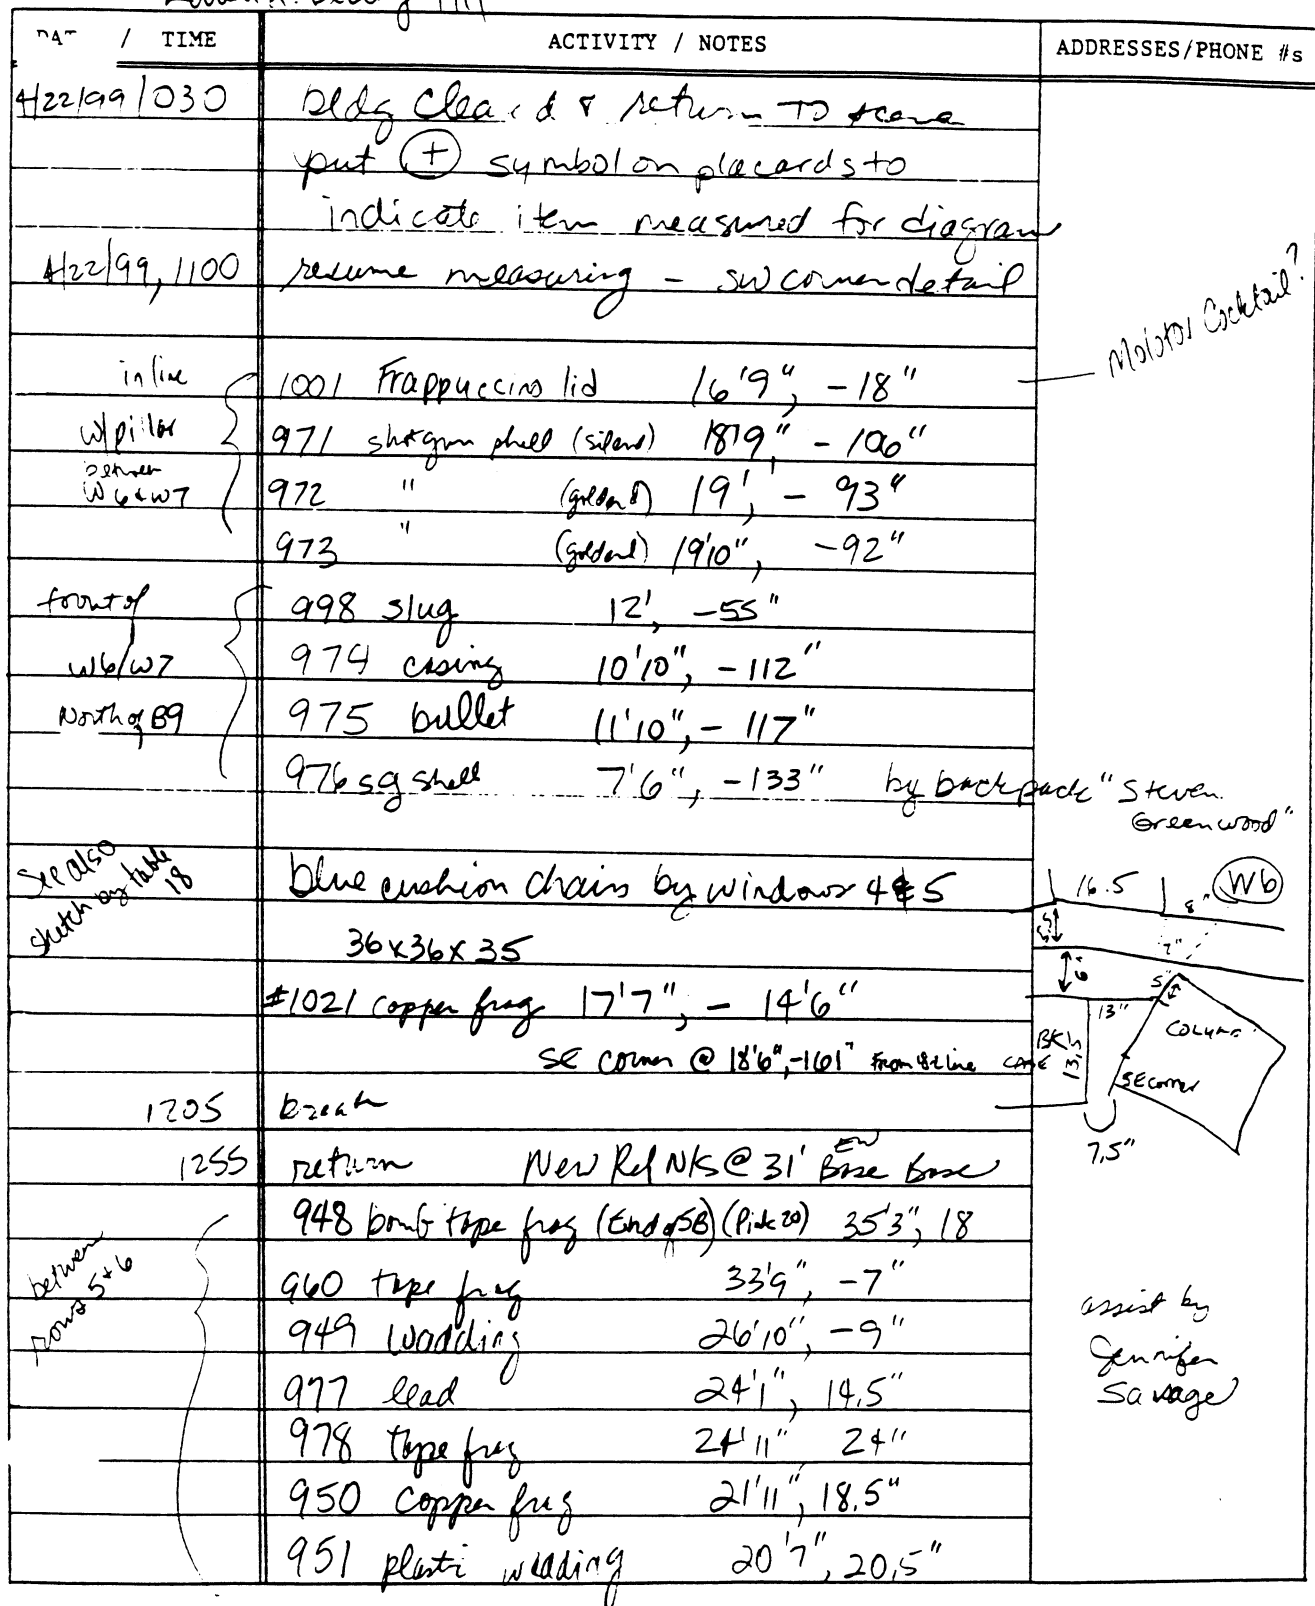 / TIME ACTIVITY / NOTES ADDRESSES/PHONE #s
4/22/99/030 bldg clea d & return TO scene
put (+) symbol on placards to
indicate item measured for diagram
4/22/99, 1100 resume measuring - SW corner detail
Molotov Cocktail?
in line 1001 Frappuccino lid 16'9", -18"
w/pillar 971 shotgun shell (silver) 18'9", -106"
between
W6 & W7 972 " (golden) 19', -93"
973 " (golden) 19'10", -92"
front of 998 slug 12', -55"
W6/W7 974 casing 10'10", -112"
North of B9 975 bullet 11'10", -117"
976 sg shell 7'6", -133" by backpack "Steven
Greenwood"
See also
sketch by table
18
blue cushion chairs by windows 4 & 5
36x36x35
#1021 copper frag 17'7", -14'6"
SE corner @ 18'6", -161" from line
16.5 8" W6
7"
5"
13"
COLUMN
BK'S
CASE 13.5
SE corner
7.5"
1205 break
1255 return New Ref N/S @ 31' EW Base Base
948 bomb tape frag (End of 5B) (Pink 20) 35'3", 18
between
rows 5+6
960 tape frag 33'9", -7"
949 wadding 26'10", -9"
977 lead 24'1", 14.5"
978 tape frag 24'11" 24"
950 copper frag 21'11", 18.5"
951 plasti wadding 20'7", 20.5"
assist by
Jennifer
Savage